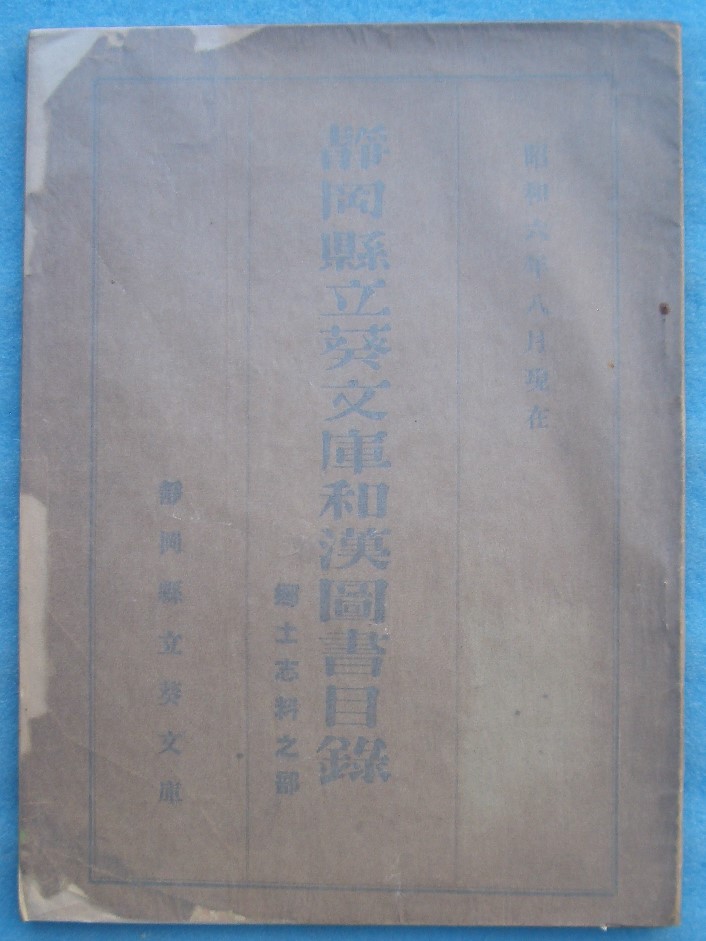 昭和六年八月現在
靜岡縣立葵文庫和漢圖書目錄
鄉土志料之部
靜岡縣立葵文庫